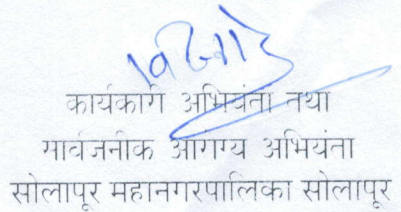 कार्यकारी अभियंता तथा
सार्वजनीक आरोग्य अभियंता
सोलापूर महानगरपालिका सोलापूर